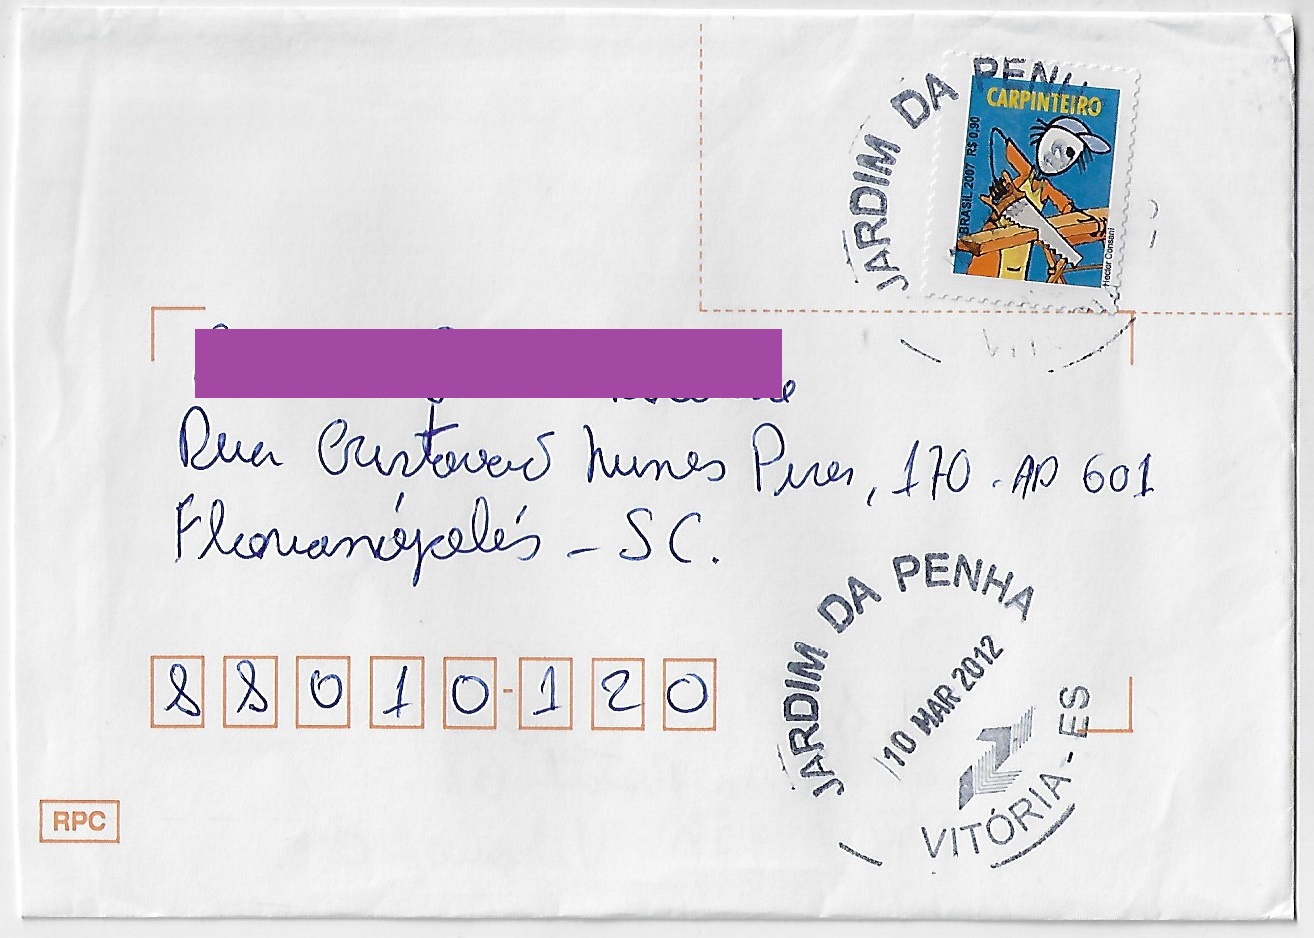 JARDIM DA PENH
CARPINTEIRO
BRASIL 2007 R$ 0,90
Hector Consani
Rua Cristovão Nunes Pires, 170 . AP 601
Florianópolis - SC.
88010-120
JARDIM DA PENHA
10 MAR 2012
VITÓRIA - ES
RPC